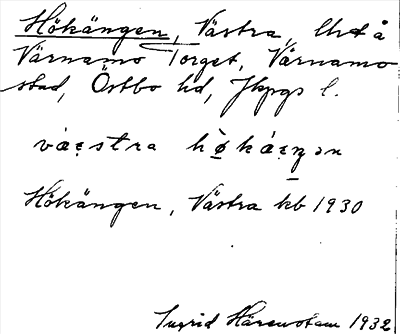 Hökängen, Västra, Urd å
Värnamo Torget, Värnamo
stad, Östbo hd, Jkpgs l.
væ̀stra hø̀kæ̀ŋən
Hökängen, Västra kb 1930
Ingrid Härenstam 1932